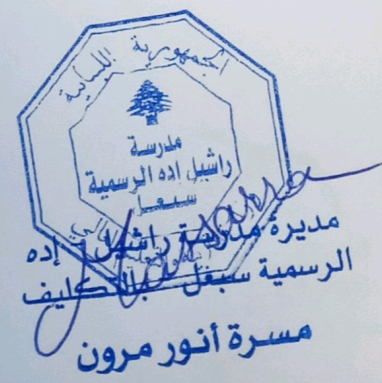 الجمهورية اللبنانية
مدرسة
راشيل اده الرسمية
سبعل
مديرة مدرسة راشيل اده
الرسمية سبعل بالتكليف
مسرة أنور مرون